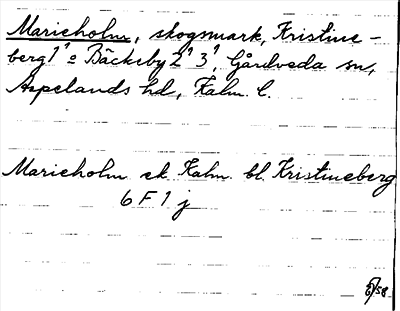 Marieholm, skogsmark, Kristine-
berg 1¹ o Bäckeby 2¹ 3¹, Gårdveda sn,
Aspelands hd, Kalm. l.
Marieholm ek. Kalm. bl. Kristineberg
6 F 1 j
/58